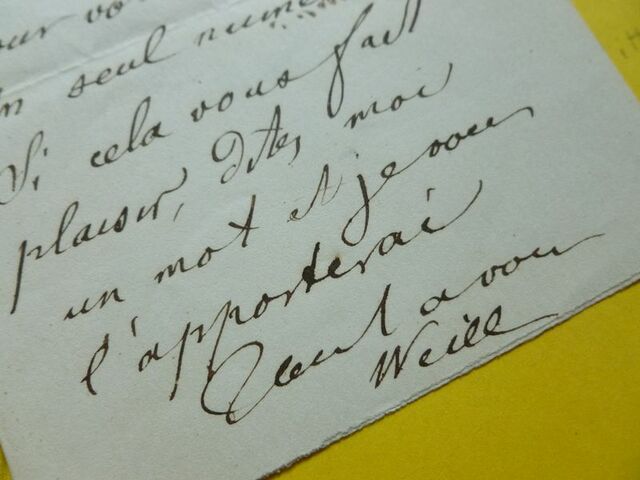 pour vou
un seul numé
Si cela vous fait
plaisir, dites moi
un mot et je vous
l'apporterai
Tout a vous
Weill